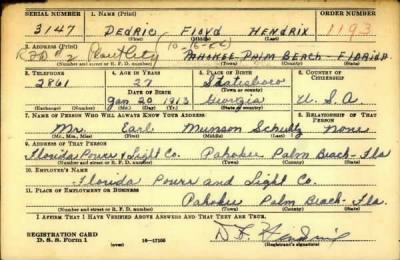 SERIAL NUMBER 1. NAME (Print) ORDER NUMBER (Print)
3147 DEDRIC FLOYD HENDRIX 1193
(First) (Middle) (Last)
2. ADDRESS (Print)
RFD #2 PAHOKEE PALM BEACH FLORIDA
(Number and street or R. F. D. number) (Town) (County) (State)
3. TELEPHONE 4. AGE IN YEARS 5. PLACE OF BIRTH 6. COUNTRY OF CITIZENSHIP
2861 27 Statesboro
DATE OF BIRTH (Town or county)
Jan 20 1913 Georgia U.S.A.
(Exchange) (Number) (Mo.) (Day) (Yr.) (State or country)
7. NAME OF PERSON WHO WILL ALWAYS KNOW YOUR ADDRESS 8. RELATIONSHIP OF THAT PERSON
Mr. Earl Munson Schultz None
(Mr., Mrs., Miss) (First) (Middle) (Last)
9. ADDRESS OF THAT PERSON
Florida Power & Light Co. Pahokee Palm Beach-Fla
(Number and street or R. F. D. number) (Town) (County) (State)
10. EMPLOYER'S NAME
Florida Power and Light Co.
11. PLACE OF EMPLOYMENT OR BUSINESS
Pahokee Palm Beach-Fla.
(Number and street or R. F. D. number) (Town) (County) (State)
I AFFIRM THAT I HAVE VERIFIED ABOVE ANSWERS AND THAT THEY ARE TRUE.
REGISTRATION CARD
D. S. S. Form 1 (over) 16-17105
D. F. Hendrix
(Registrant's signature)